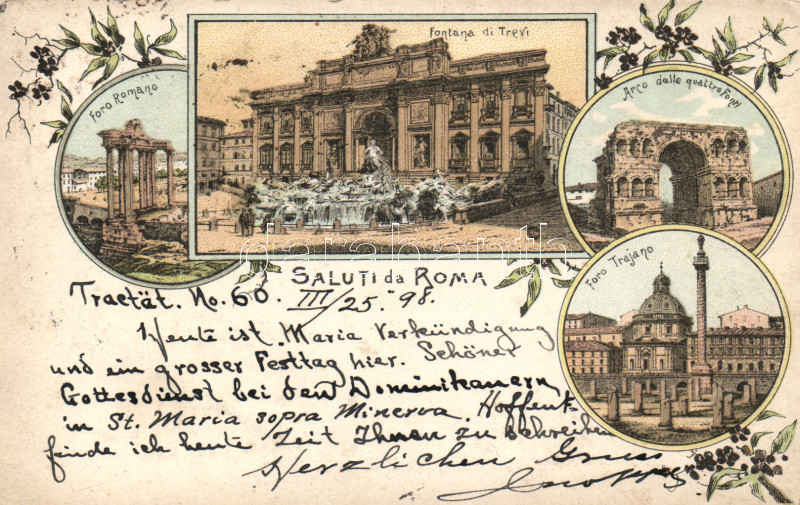 Foro Romano
Fontana di Trevi
Arco delle quattro fonti
Foro Trajano
SALUTI da ROMA
darabanth
Tractät. No. 60. III/25. 98.
Heute ist Maria Verkündigung
und ein grosser Festtag hier. Schöner
Gottesdienst bei den Dominikanern
in St. Maria sopra Minerva. Hoffent-
finde ich heute Zeit Ihnen zu schreiben
Herzlichen Gruss